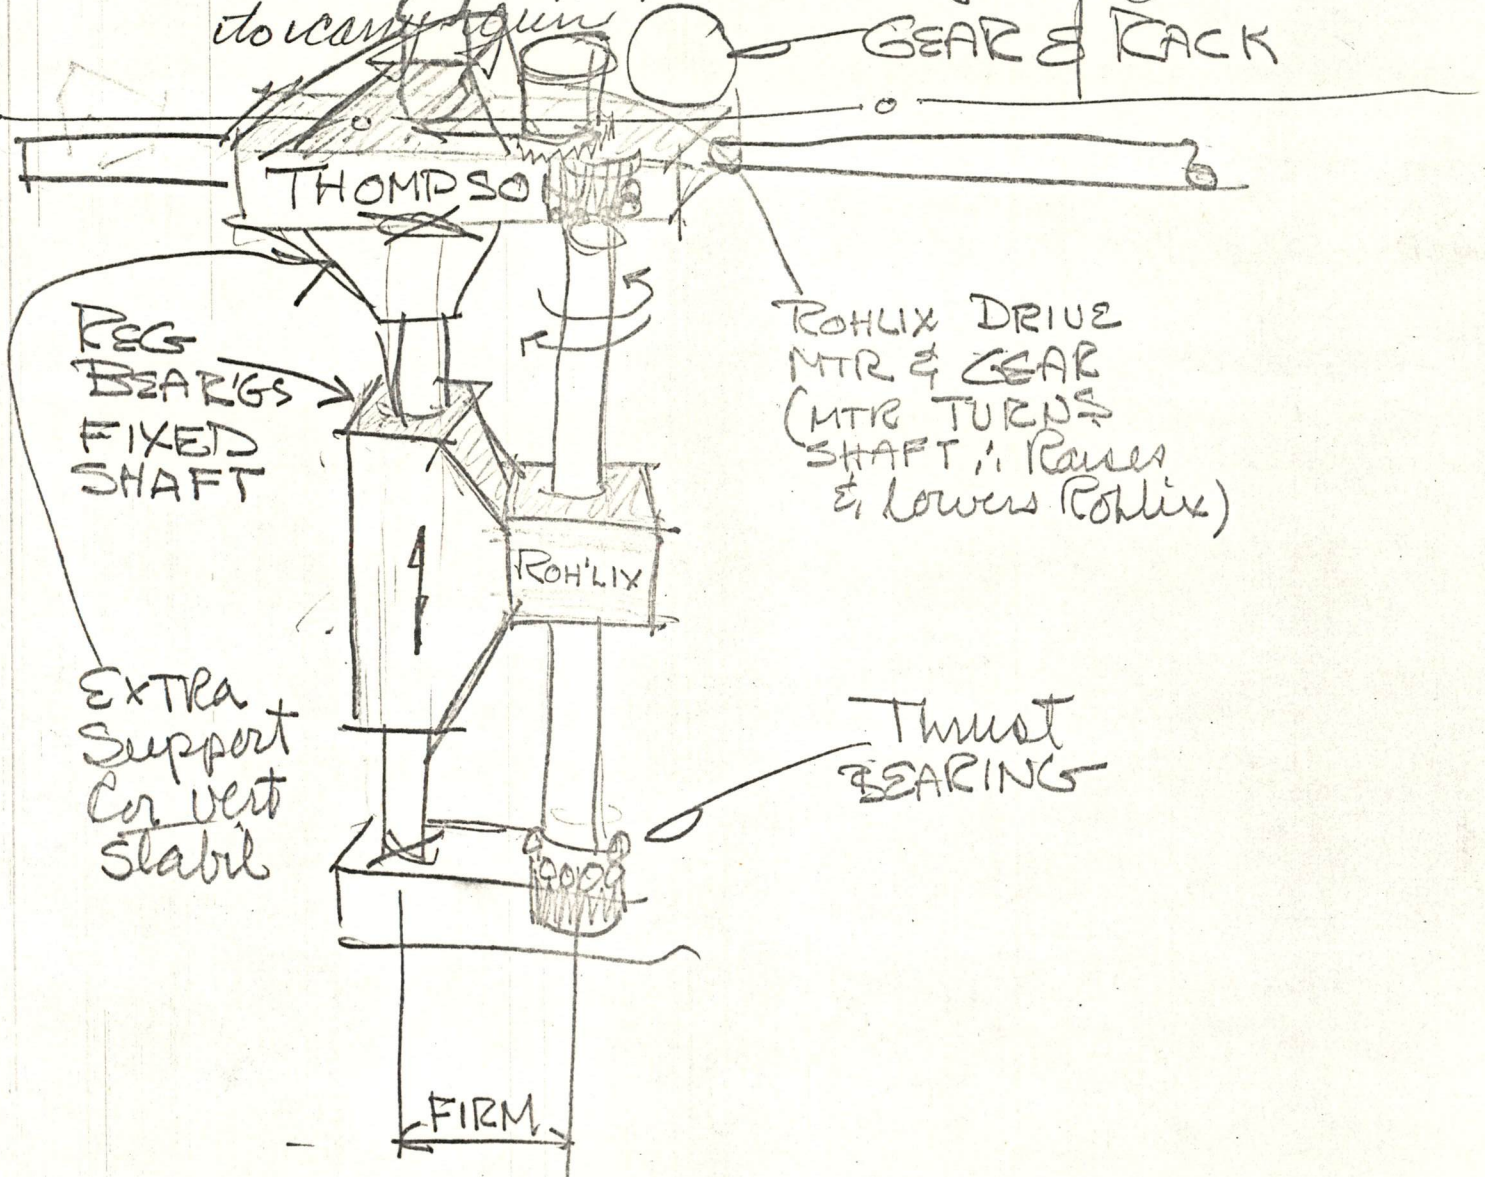 to carry gun
GEAR & RACK
THOMPSO
REG
BEAR'GS
FIXED
SHAFT
ROHLIX DRIVE
MTR & GEAR
(MTR TURNS
SHAFT ∴ Raises
& Lowers Rohlix)
ROH'LIX
EXTRA
Support
for vert
stabil
Thrust
BEARING
FIRM